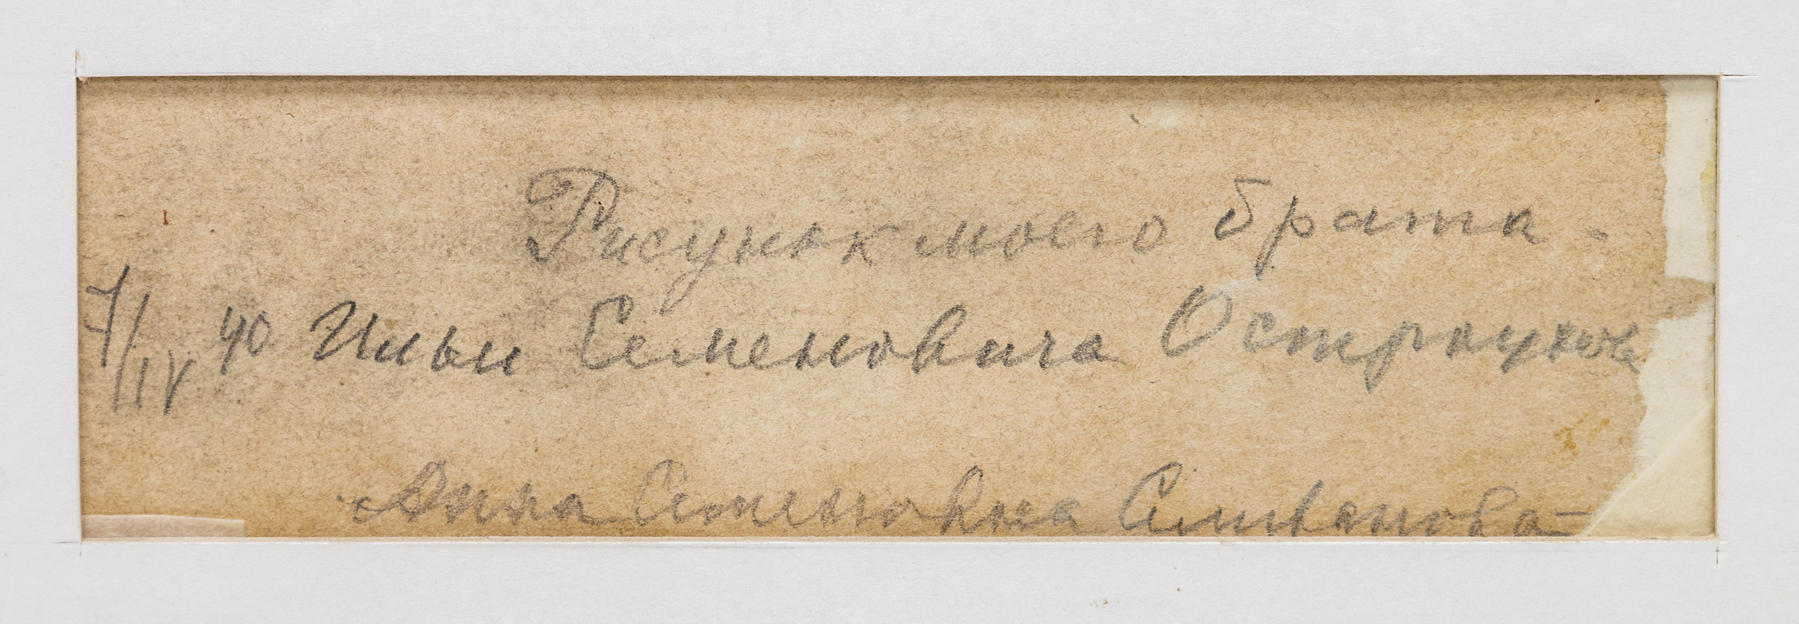 Рисунок моего брата.
7/IV 40 Ильи Семеновича Остроухова
Анна Семеновна